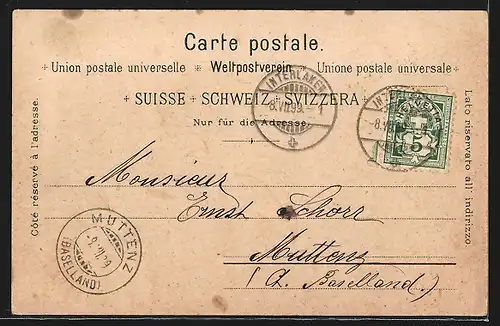 Carte postale.
Union postale universelle Weltpostverein Unione postale universale
SUISSE SCHWEIZ SVIZZERA
Nur für die Adresse.
Côté réservé à l'adresse.
Lato riservato all'indirizzo.
INTERLAKEN
8.VII.99. - 1
HELVETIA
5
Monsieur
Ernst Schorr
Muttenz
(Ct. Baselland.)
MUTTENZ
(BASELLAND)